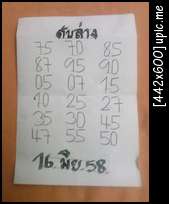 ดับล่าง
75 70 85
87 95 90
05 07 15
10 25 27
35 30 45
47 55 50
16 มิย. 58.
[442x600] upic.me